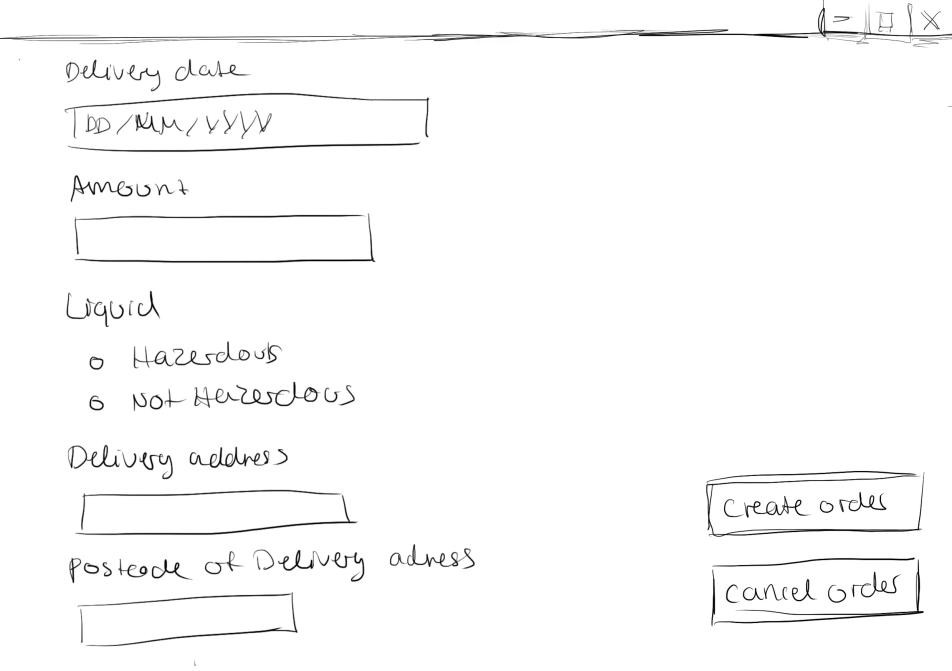 Delivery date
DD/MM/YYYY
Amount
Liquid
Hazerdous
Not Hazerdous
Delivery address
Postcode of Delivery adress
Create order
Cancel order